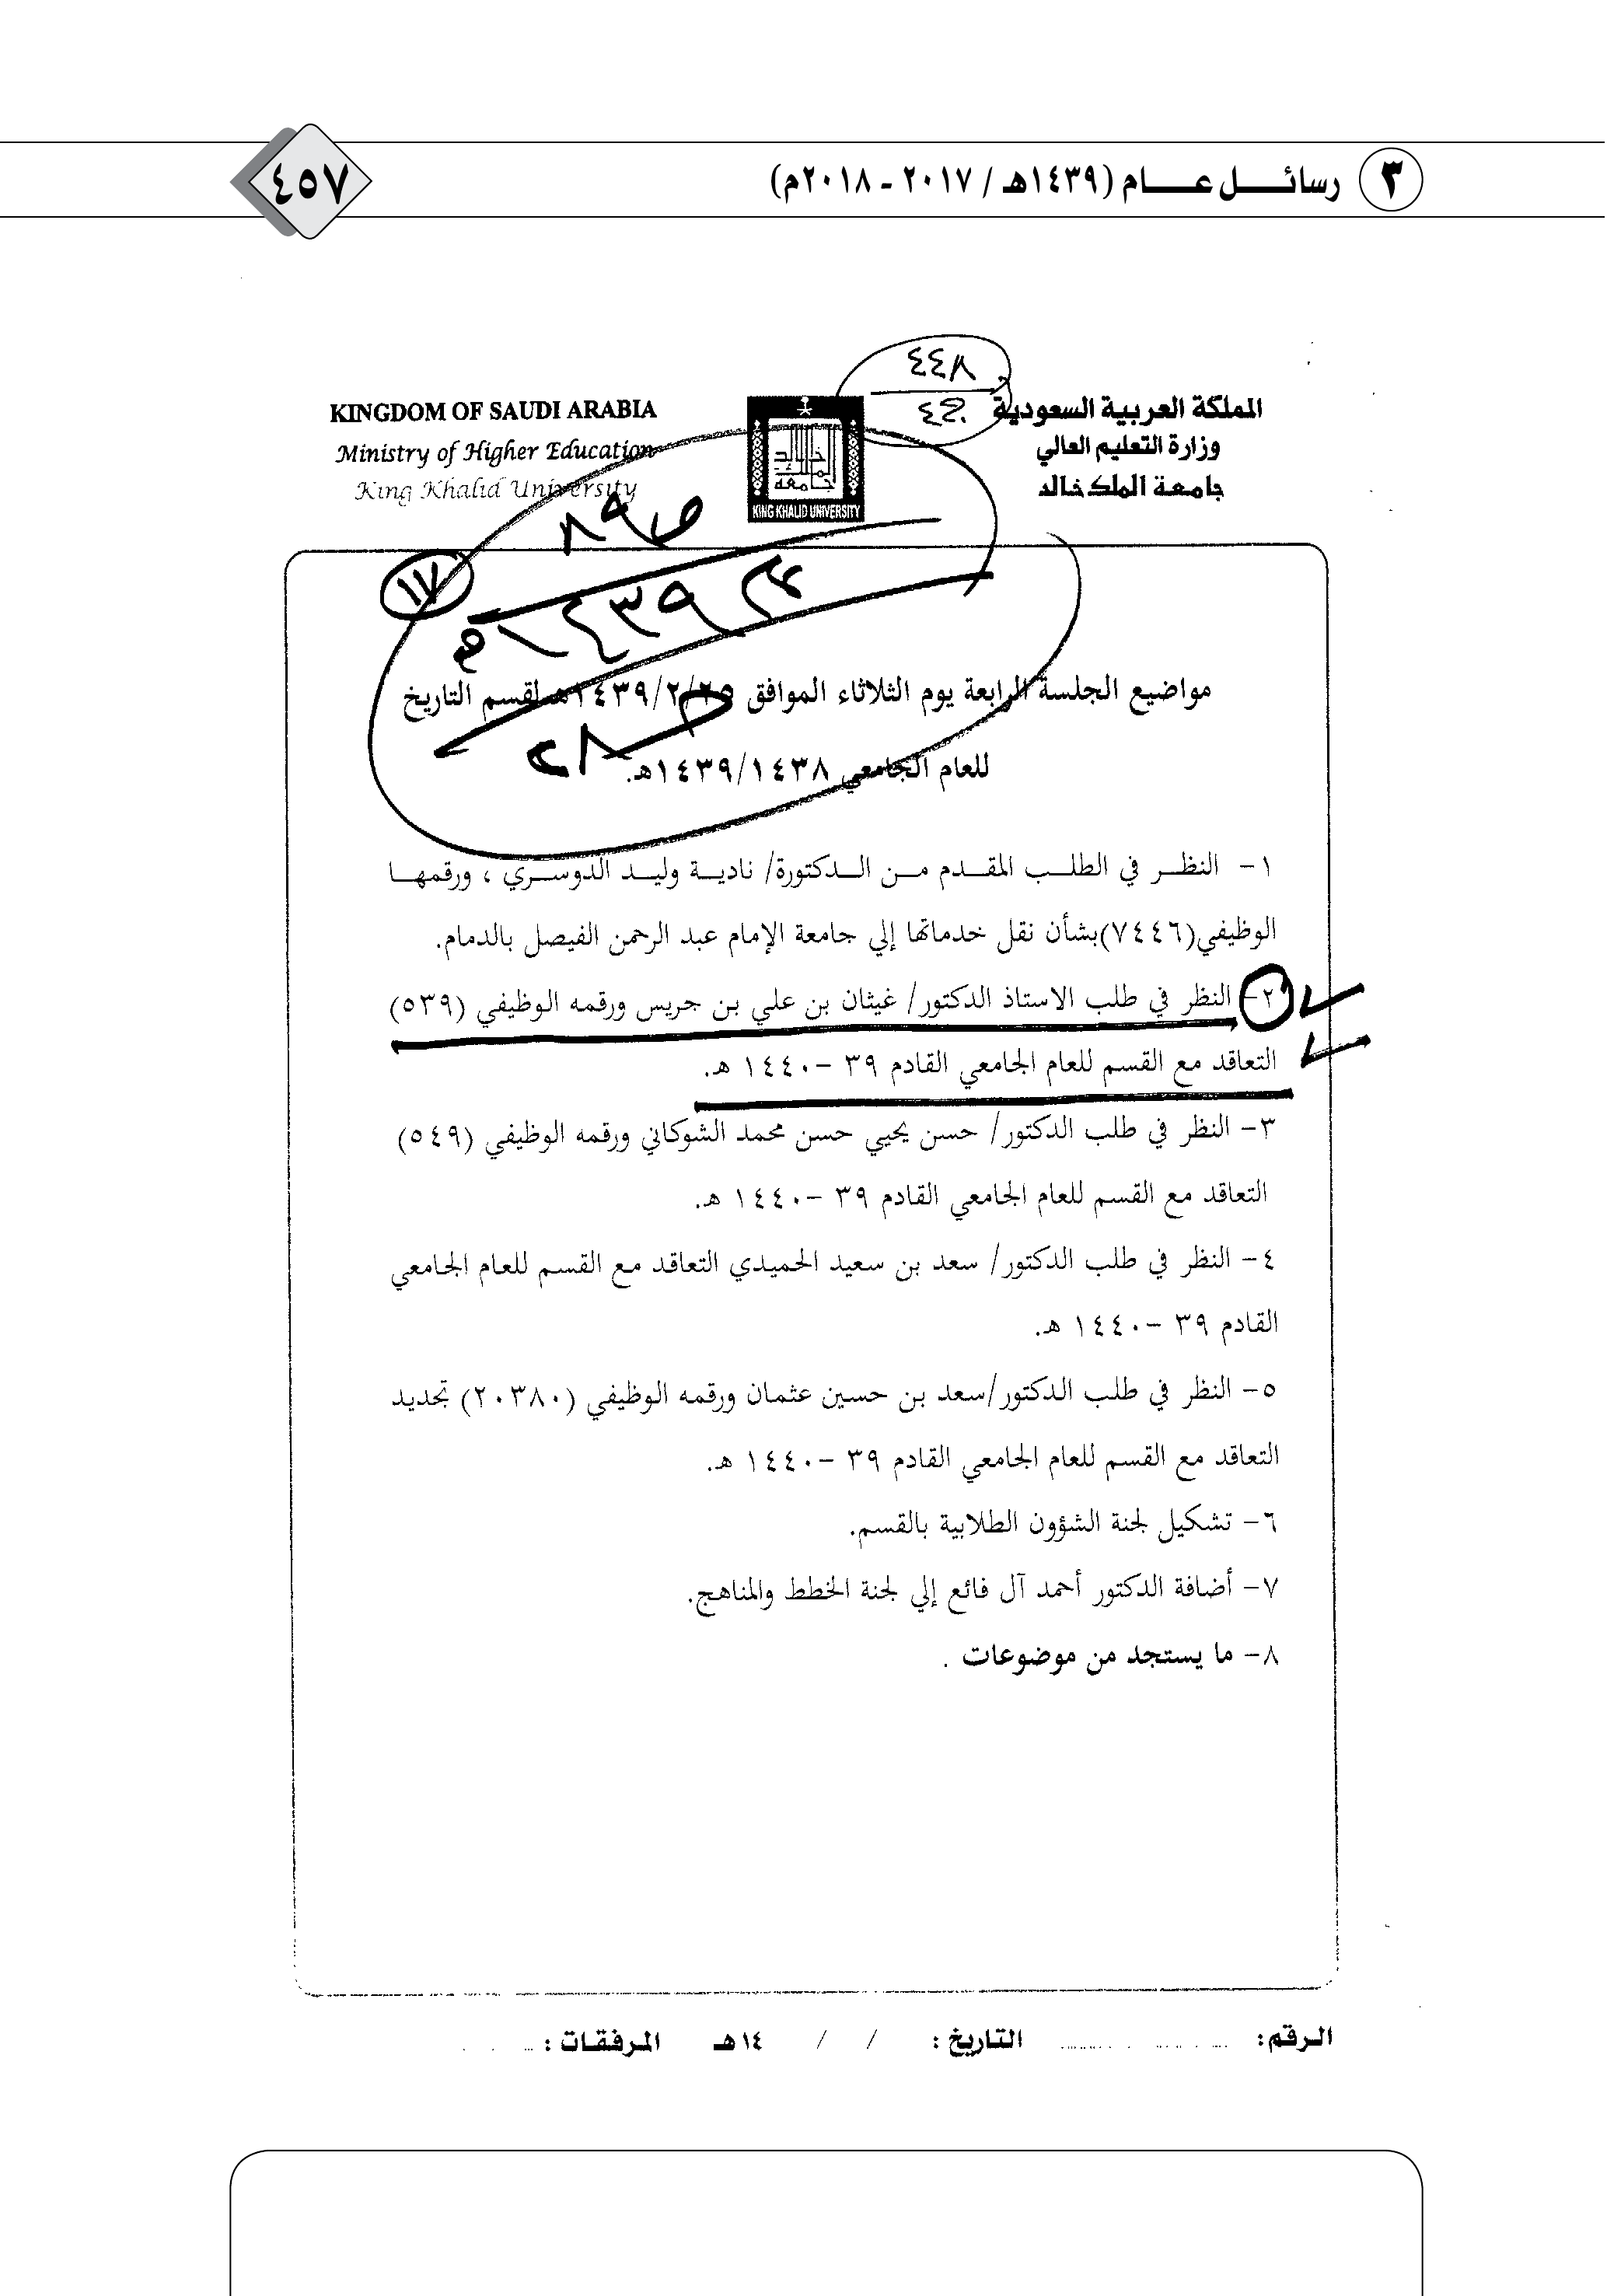 ٣ رسائل عام (١٤٣٩هـ / ٢٠١٧ - ٢٠١٨م)
٤٥٧
٤٤٨
المملكة العربية السعودية
وزارة التعليم العالي
جامعة الملك خالد
جامعة الملك خالد
KING KHALID UNIVERSITY
KINGDOM OF SAUDI ARABIA
Ministry of Higher Education
King Khalid University
١٧
١٤٣٩
مواضيع الجلسة الرابعة يوم الثلاثاء الموافق ١٤٣٩/٢/٢٥هـ لقسم التاريخ
للعام الجامعي ١٤٣٩/١٤٣٨هـ.
١- النظر في الطلب المقدم من الدكتورة/ نادية وليد الدوسري ، ورقمها
الوظيفي(٧٤٤٦)بشأن نقل خدماتها إلي جامعة الإمام عبد الرحمن الفيصل بالدمام.
٢- النظر في طلب الاستاذ الدكتور/ غيثان بن علي بن جريس ورقمه الوظيفي (٥٣٩)
التعاقد مع القسم للعام الجامعي القادم ٣٩ -١٤٤٠ هـ.
٣- النظر في طلب الدكتور/ حسن يحيي حسن محمد الشوكاني ورقمه الوظيفي (٥٤٩)
التعاقد مع القسم للعام الجامعي القادم ٣٩ -١٤٤٠ هـ.
٤- النظر في طلب الدكتور/ سعد بن سعيد الحميدي التعاقد مع القسم للعام الجامعي
القادم ٣٩ -١٤٤٠ هـ.
٥- النظر في طلب الدكتور/سعد بن حسين عثمان ورقمه الوظيفي (٢٠٣٨٠) تجديد
التعاقد مع القسم للعام الجامعي القادم ٣٩ -١٤٤٠ هـ.
٦- تشكيل لجنة الشؤون الطلابية بالقسم.
٧- أضافة الدكتور أحمد آل فائع إلي لجنة الخطط والمناهج.
٨- ما يستجد من موضوعات .
الرقم: التاريخ : / / ١٤هـ المرفقات :